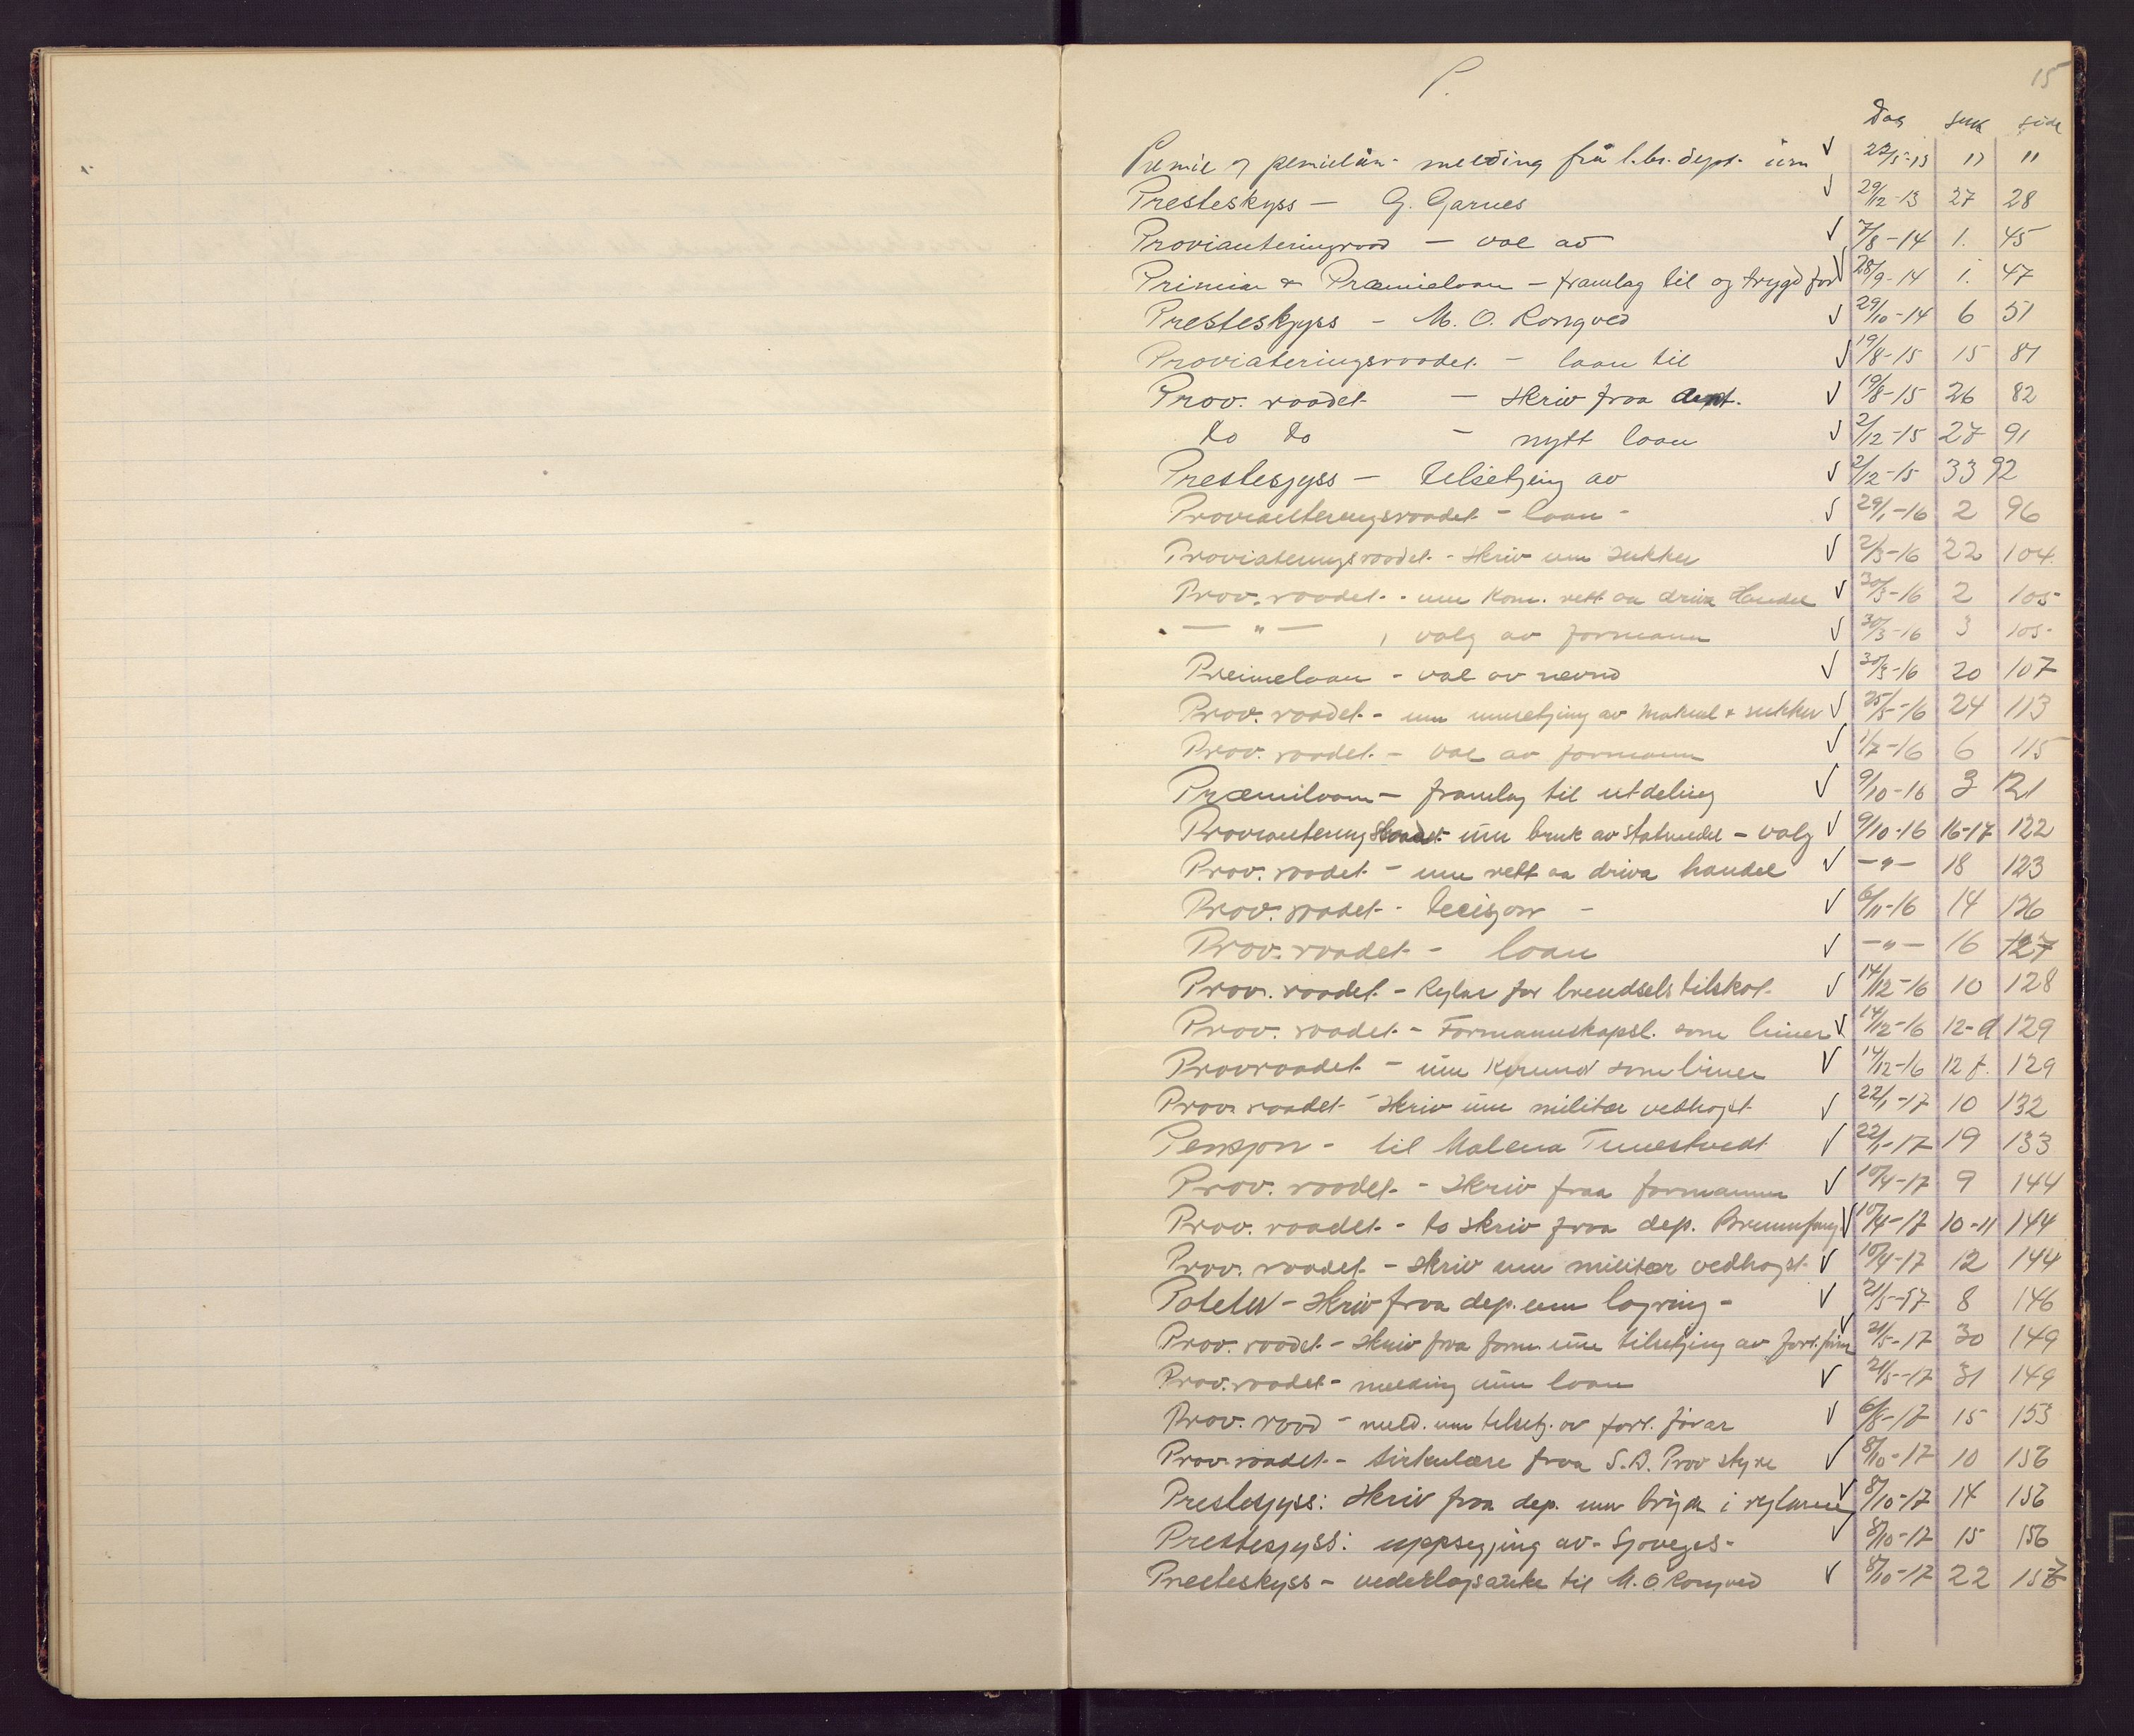 P.
15
Dag sak side
Premie og premielån - melding frå l.br. dept. um √ 22/5-13 17 11
Presteskyss - G. Garnes √ 29/12-13 27 28
Provianteringsraad - val av √ 7/8-14 1. 45
Primiar & Præmielaan - framlag til og trygd for √ 28/9-14 1. 47
Presteskyss - M. O. Rongved √ 29/10-14 6 51
Proviateringsraadet - laan til √ 19/8-15 15 81
Prov. raadet - skriv fraa dept. √ 19/8-15 26 82
do do - nytt laan √ 2/12-15 27 91
Prestesjyss - tilsetjing av √ 2/12-15 33 92
Provianteringsraadet - laan - √ 29/1-16 2 96
Proviateringsraadet - skriv um sukker √ 2/3-16 22 104
Prov. raadet - um kom. rett aa driva Handel √ 30/3-16 2 105
— " — , valg av formann √ 30/3-16 3 105
Preimelaan - val av nevnd √ 30/3-16 20 107
Prov. raadet - um umsetjing av Makrel & sukker √ 25/5-16 24 113
Prov. raadet - val av formann √ 1/7-16 6 115
Præmilaan - framlag til utdeling √ 9/10-16 3 121
Provianteringsraadet um bruk av statmedel - valg √ 9/10-16 16-17 122
Prov. raadet - um rett aa driva handel √ — " — 18 123
Prov. raadet - Decisjon - √ 6/11-16 14 126
Prov. raadet - laan √ — " — 16 127
Prov. raadet - Reglar for brendselstilskot √ 14/12-16 10 128
Prov. raadet - Formannskapsl. som limer √ 14/12-16 12-d 129
Provraadet - um som limer √ 14/12-16 12 f. 129
Prov. raadet - Skriv um militær vedhogst √ 22/1-17 10 132
Pensjon - til Malena Tunestvedt √ 22/1-17 19 133
Prov. raadet - Skriv fraa formannen √ 10/4-17 9 144
Prov. raadet - to skriv fraa dep. Brennfang √ 10/4-17 10-11 144
Prov. raadet - skriv um militær vedhogst √ 10/4-17 12 144
Poteter - Skriv fraa dep. um lagring - √ 21/5-17 8 146
Prov. raadet - Skriv fraa form. um tilsetjing av forr.förar √ 21/5-17 30 149
Prov. raadet - melding um laan √ 21/5-17 31 149
Prov. raad - meld. um tilsetj. av forr. förar √ 6/8-17 15 153
Prov. raadet - Sirkulære fraa S.B. Prov styre √ 8/10-17 10 156
Prestesjyss: Skriv fraa dep. um brigde i reglarne √ 8/10-17 14 156
Prestesjyss: uppsegjing av Sjoveges- √ 8/10-17 15 156
Presteskyss - vederlagsauke til M. O. Rongved √ 8/10-17 22 157